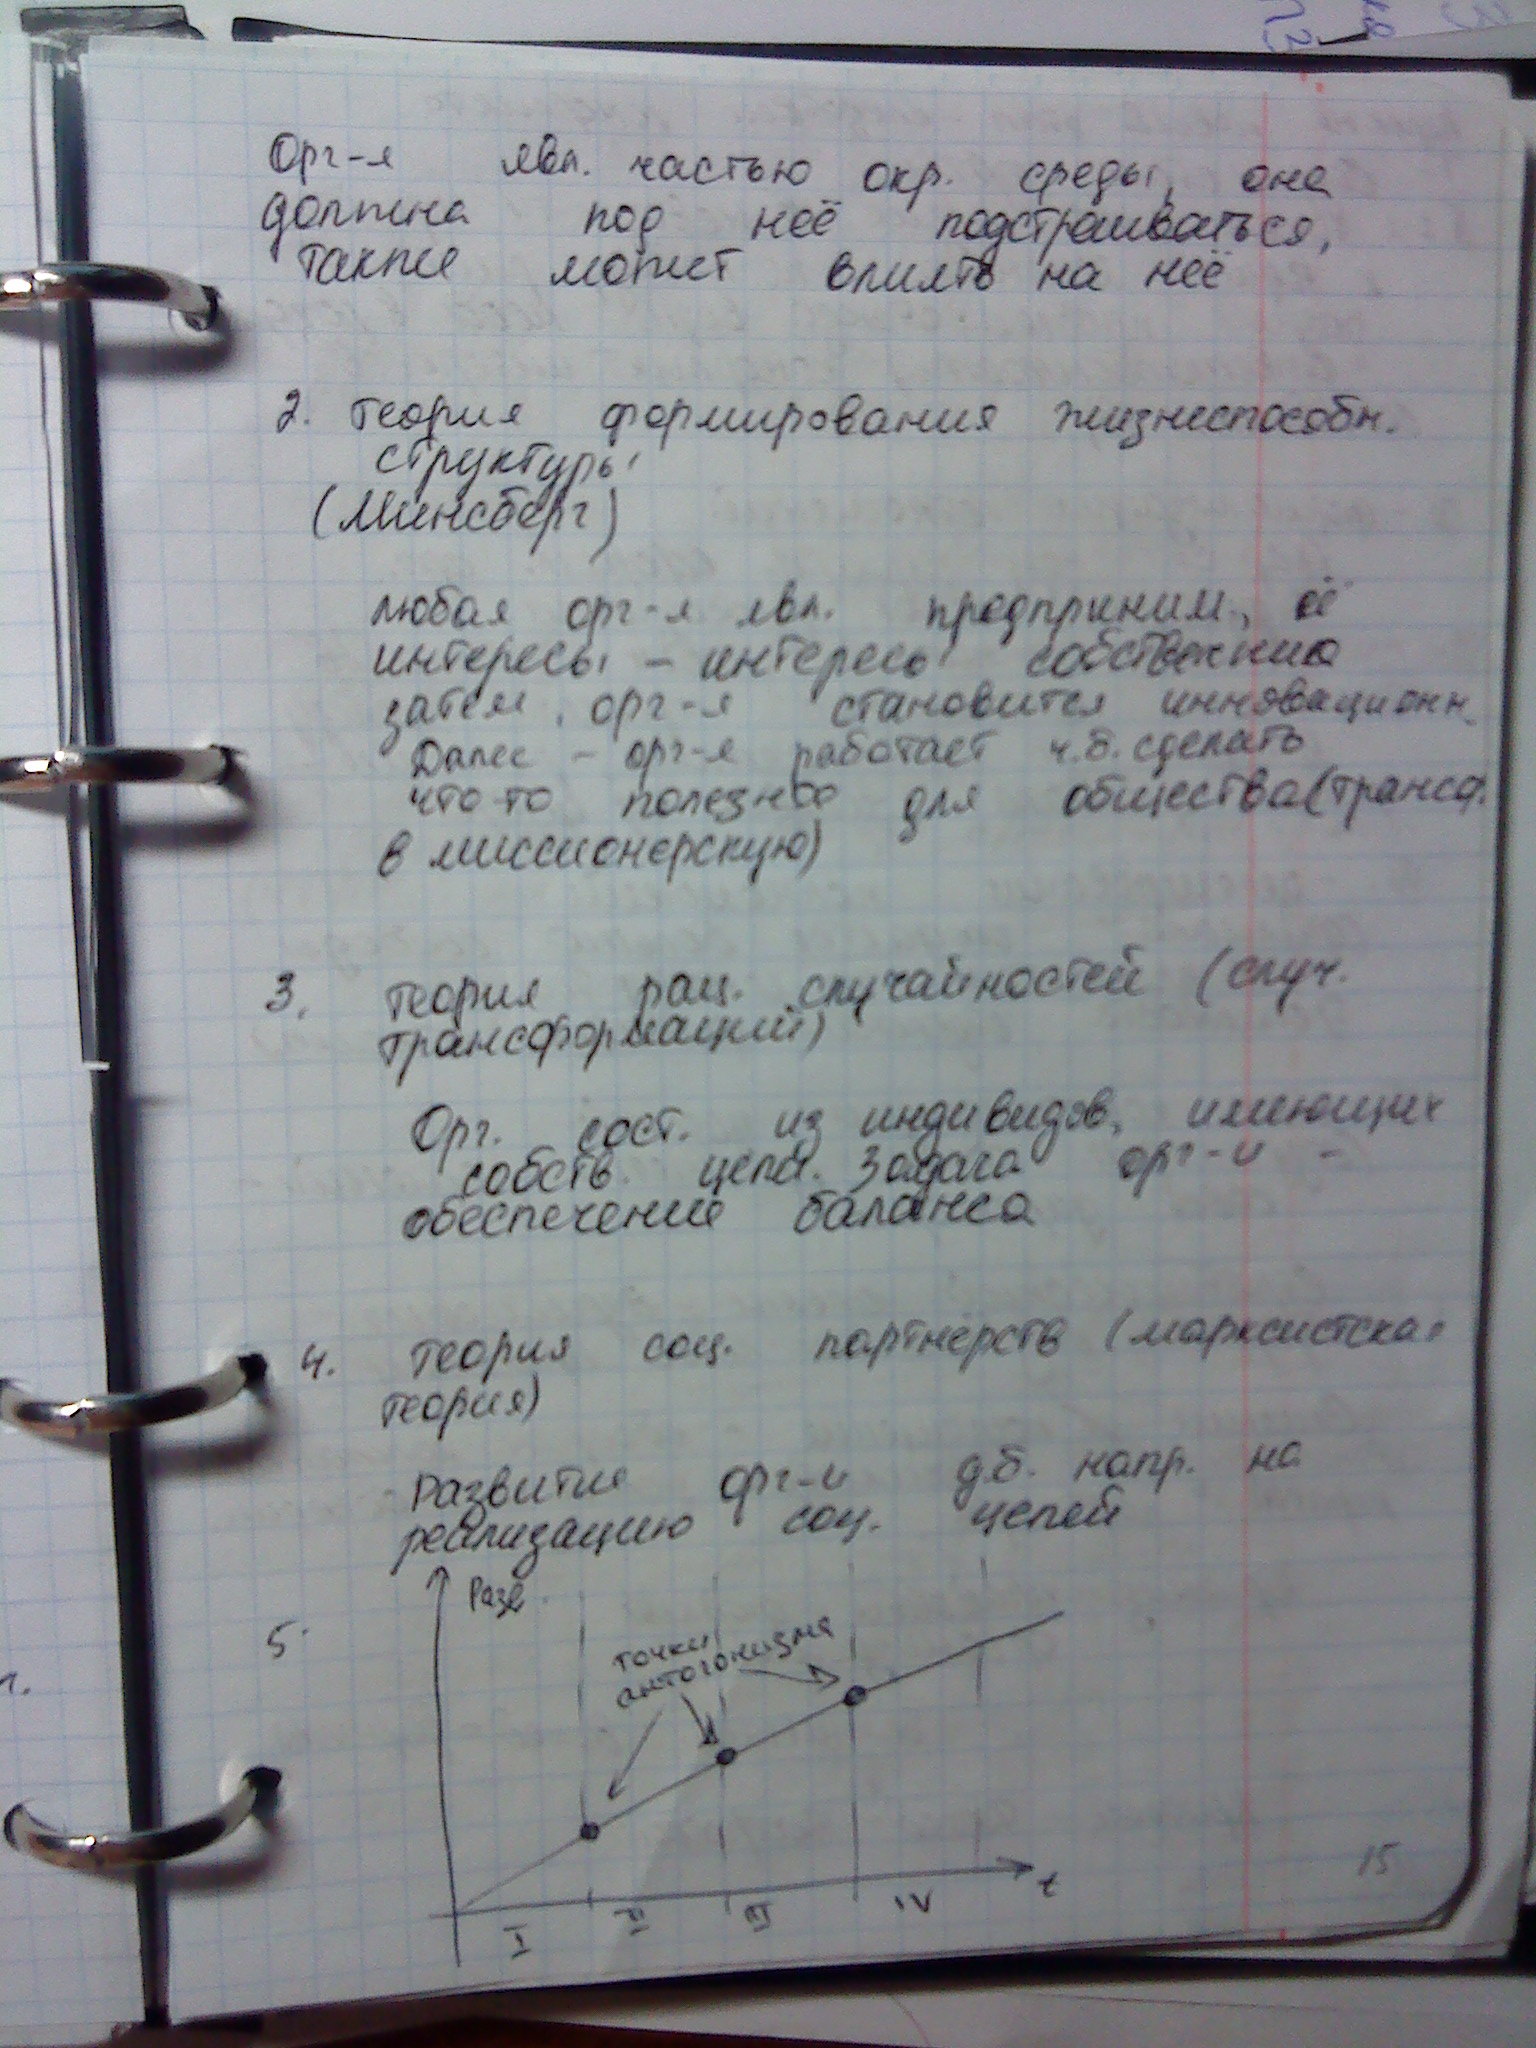 Орг-я явл. частью окр. среды, она
должна под неё подстраиваться,
также может влиять на неё
2. Теория формирования жизнеспособн.
структуры
(Минсберг)
любая орг-я явл. предприним., её
интересы - интересы собственника
затем, орг-я становится инновационн.
Далее - орг-я работает ч.б. сделать
что-то полезное для общества (трансф.
в миссионерскую)
3. Теория рац. случайностей (случ.
трансформаций)
Орг. сост. из индивидов, имеющих
собств. цели. Задача орг-и -
обеспечение баланса
4. Теория соц. партнёрств (марксистская
теория)
Развитие орг-и д.б. напр. на
реализацию соц. целей
5.
Разв.
точки
антогонизма
I II III IV t
15